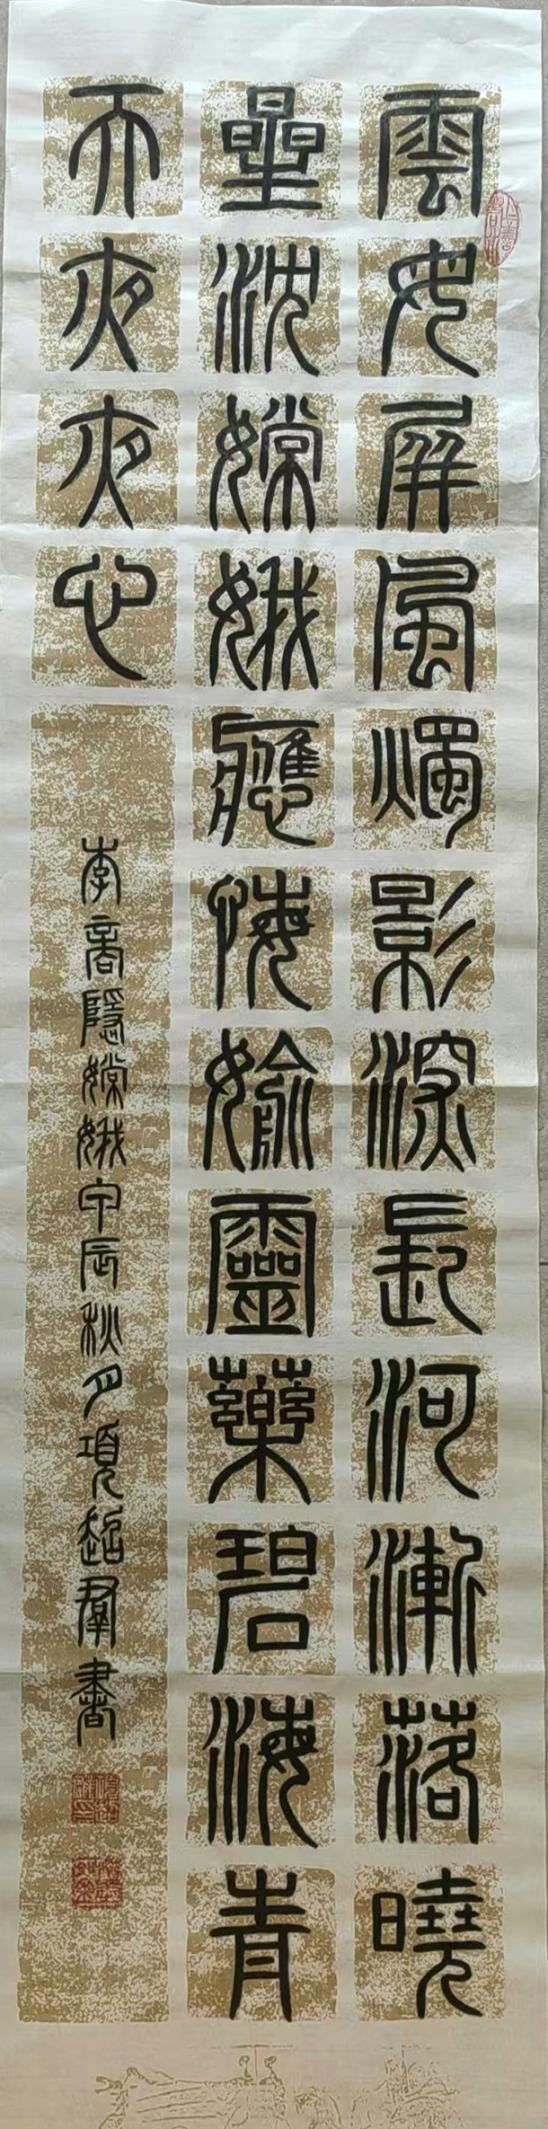 雲母屏風燭影深長河漸落曉
星沈嫦娥應悔媮靈藥碧海青
天夜夜心
李商隱嫦娥甲辰秋月項超羣書